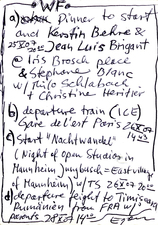 "WF"
a) Dinner to start
and Kerstin Behre &
25X07 20:00 Jean Luis Brigant
@ Iris Brosch place
& Stephane Blanc
w/ Thilo Schlabach
+ Christine Heritier
b) departure train (ICE)
Gare de l'est Paris 26X07
c) Start "Nachtwandel"
(Night of open Studios in
Mannheim Jungbusch = East village
of Mannheim) w/TS 26X07 20:00
d) departure feight to Timisoara
Rumänien from FRA w/
parents 28X07 14:00